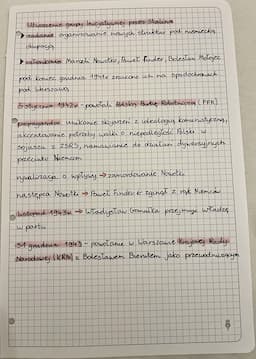 Utworzenie grupy inicjatywnej przez Stalina
▸ zadanie: organizowanie nowych struktur pod niemiecką
okupacją
▸ członkowie: Marceli Nowotko, Paweł Finder, Bolesław Mołojec
pod koniec grudnia 1941r zrzucono ich na spadochronach
pod Warszawą
5 stycznia 1942r - powstała Polska Partia Robotnicza (PPR)
propaganda: unikanie skojarzeń z ideologią komunistyczną,
akcentowanie potrzeby walki o niepodległość Polski w
sojuszu z ZSRS, namawianie do działań dywersyjnych
przeciwko Niemcom
rywalizacja o wpływy → zamordowanie Nowotki
następca Nowotki → Paweł Finder zginął z rąk Niemców
listopad 1943r → Władysław Gomułka przejmuje władzę
w partii
31 grudnia 1943 - powołanie w Warszawie Krajowej Rady
Narodowej (KRN) z Bolesławem Bierutem jako przewodniczącym